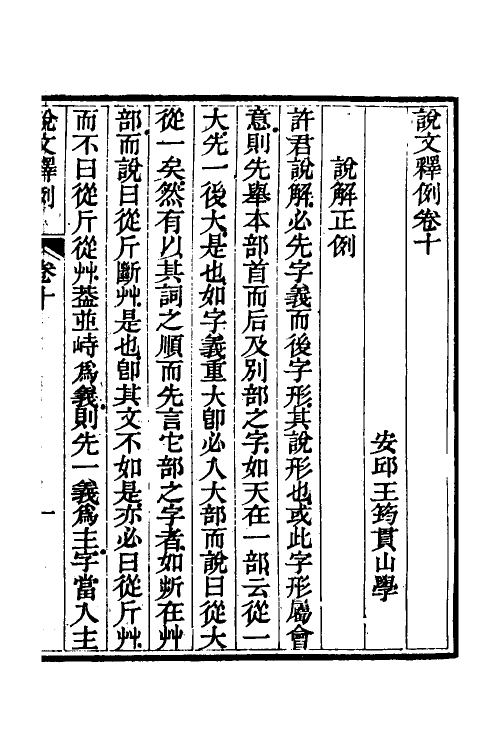 說文釋例卷十
安邱王筠貫山學
說解正例
許君說解必先字義而後字形其說形也或此字形屬會
意則先舉本部首而后及別部之字如天在一部云從一
大先一後大是也如字義重大卽必入大部而說曰從大
從一矣然有以其詞之順而先言它部之字者如斯在艸
部而說曰從斤斷艸是也卽其文不如是亦必曰從斤艸
而不曰從斤從艸葢並峙爲義則先一義爲主字當入主
說文釋例
卷十
一